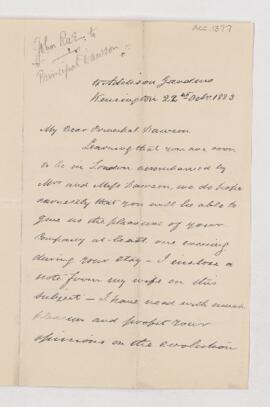 ACC. 1377
John Rae to
Principal Dawson
Addison Gardens
Kensington 22nd Octr. 1883
My Dear Principal Dawson
Learning that you are soon
to be in London accompanied by
Mrs and Miss Dawson, we do hope
earnestly that you will be able to
give us the pleasure of your
company at least one evening
during your stay – I inclose a
note from my wife on this
subject – I have read with much
pleasure and profit your
opinions on the evolution